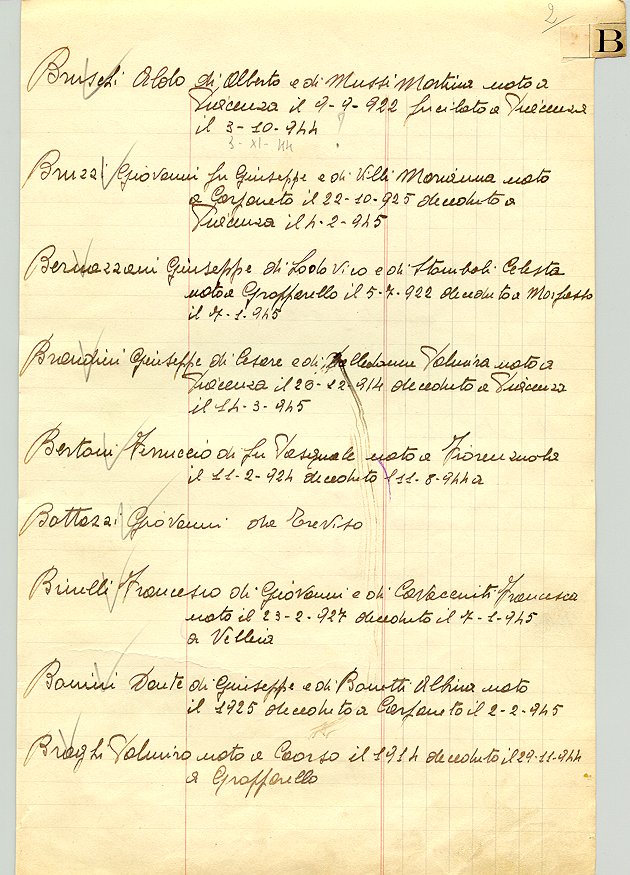 2/
B
Bruschi Aldo di Alberto e di Mussi Martina nato a
Piacenza il 9-9-922 fucilato a Piacenza
il 3-10-944
3-XI-44
Bruzzi Giovanni fu Giuseppe e di Villi Marianna nato
a Carpaneto il 22-10-925 deceduto a
Piacenza il 4-2-945
Bernazzani Giuseppe di Lodovico e di Stomboli Celesta
nato a Gropparello il 5-7-922 deceduto a Morfasso
il 7-1-945
Brandini Giuseppe di Cesare e di Valmira nato a
Piacenza il 20-12-914 deceduto a Piacenza
il 14-3-945
Bertoni Ferruccio di fu Pasquale nato a Fiorenzuola
il 11-2-924 deceduto l'11-8-944 a
Bottazzi Giovanni da Treviso
Brinelli Francesco di Giovanni e di Francesca
nato il 23-2-927 deceduto il 7-1-945
a Velleia
Bonini Dante di Giuseppe e di Bonetti Albina nato
il 1925 deceduto a Carpaneto il 2-2-945
Braghi Palmiro nato a Caorso il 1914 deceduto il 29-11-944
a Gropparello